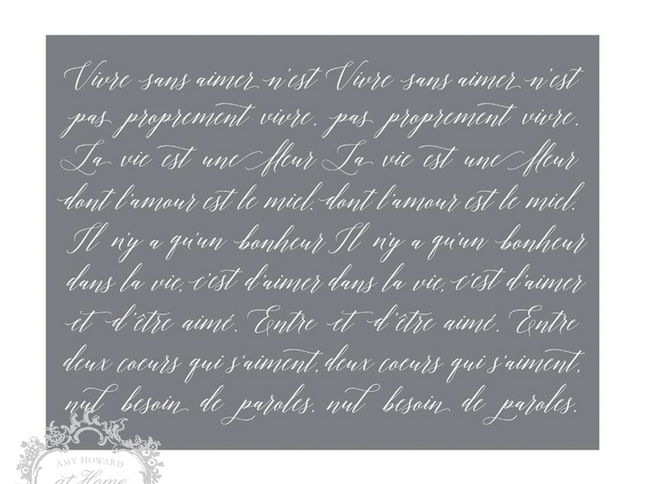 Vivre sans aimer n'est Vivre sans aimer n'est
pas proprement vivre. pas proprement vivre.
La vie est une fleur La vie est une fleur
dont l'amour est le miel. dont l'amour est le miel.
Il n'y a qu'un bonheur Il n'y a qu'un bonheur
dans la vie, c'est d'aimer dans la vie, c'est d'aimer
et d'être aimé. Entre et d'être aimé. Entre
deux coeurs qui s'aiment, deux coeurs qui s'aiment,
nul besoin de paroles. nul besoin de paroles.
AMY HOWARD
at Home